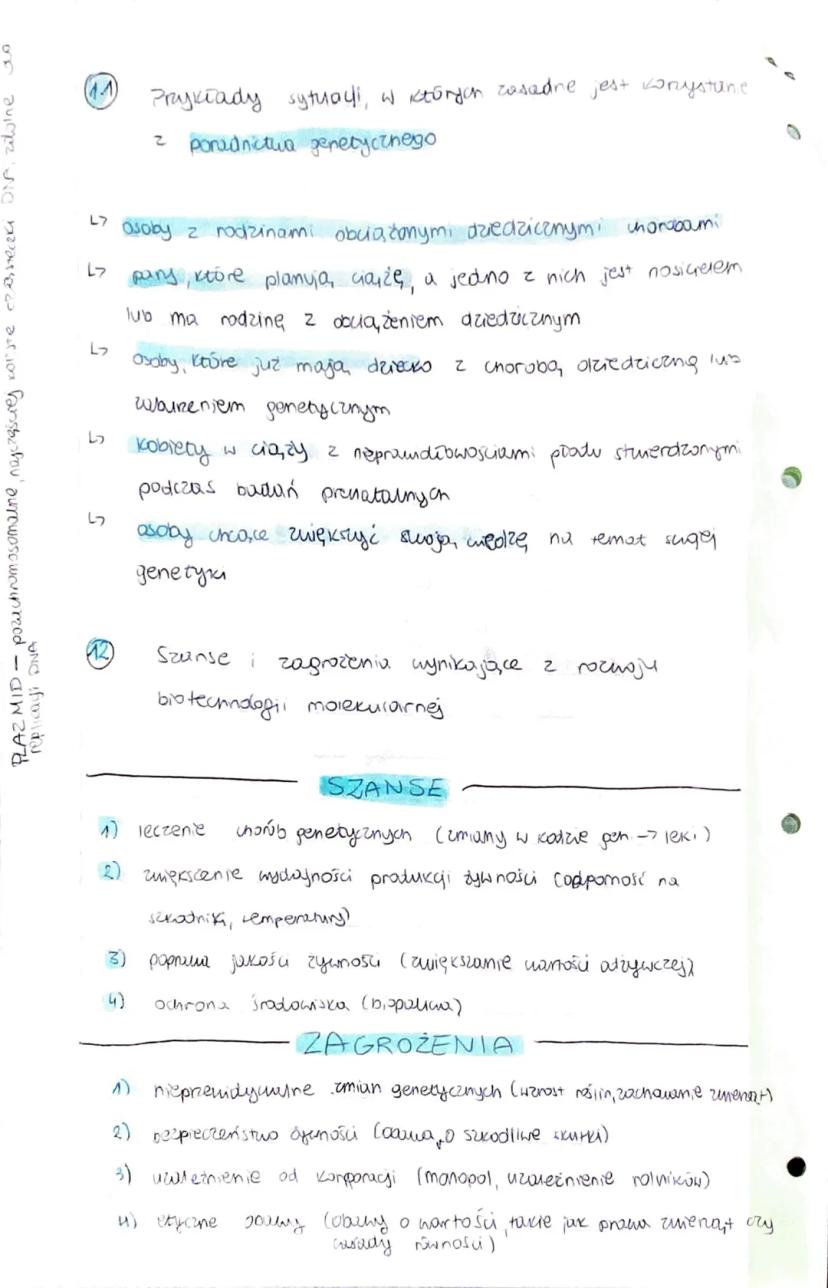 11 Przykłady sytuacji, w których zasadne jest korzystanie
z poradnictwa genetycznego
↳ osoby z rodzinami obciążonymi dziedzicznymi chorobami
↳ pary, które planują ciążę, a jedno z nich jest nosicielem
lub ma rodzinę z obciążeniem dziedzicznym
↳ osoby, które już mają dziecko z chorobą dziedziczną lub
zaburzeniem genetycznym
↳ kobiety w ciąży z nieprawidłowościami płodu stwierdzonymi
podczas badań prenatalnych
↳ osoby chcące zwiększyć swoją wiedzę na temat swojej
genetyki
12 Szanse i zagrożenia wynikające z rozwoju
biotechnologii molekularnej
SZANSE
1) leczenie chorób genetycznych (zmiany w kodzie gen → leki)
2) zwiększenie wydajności produkcji żywności (odporność na
szkodniki, temperatury)
3) poprawa jakości żywności (zwiększanie wartości odżywczej)
4) ochrona środowiska (biopaliwa)
ZAGROŻENIA
1) nieprzewidywalne zmian genetycznych (wzrost roślin, zachowanie zwierząt)
2) bezpieczeństwo żywności (obawa o szkodliwe skutki)
3) uzależnienie od korporacji (monopol, uzależnienie rolników)
4) etyczne obawy (obawy o wartości, takie jak prawa zwierząt czy
zasady równości)
PLAZMID – pozachromosomalne, najczęściej koliste cząsteczki DNA, zdolne do
replikacji DNA